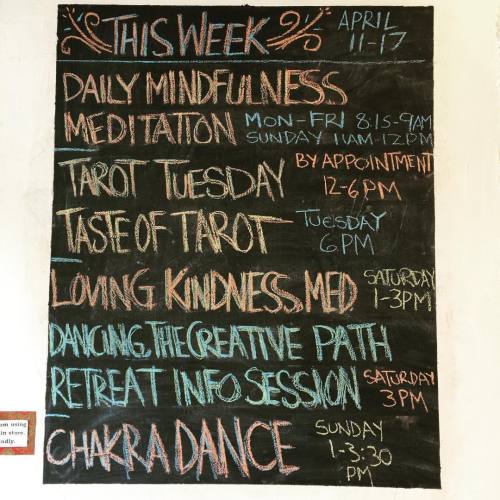 THIS WEEK APRIL 11-17
DAILY MINDFULNESS
MEDITATION MON-FRI 8:15-9AM
SUNDAY 11AM-12PM
TAROT TUESDAY BY APPOINTMENT
12-6PM
TASTE OF TAROT TUESDAY
6PM
LOVING KINDNESS MED. SATURDAY
1-3PM
DANCING THE CREATIVE PATH
RETREAT INFO SESSION SATURDAY
3PM
CHAKRA DANCE SUNDAY
1-3:30
PM
using
in store.